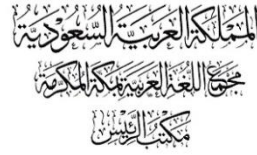 المملكة العربية السعودية
مجمع اللغة العربية بمكة المكرمة
مكتب الرئيس